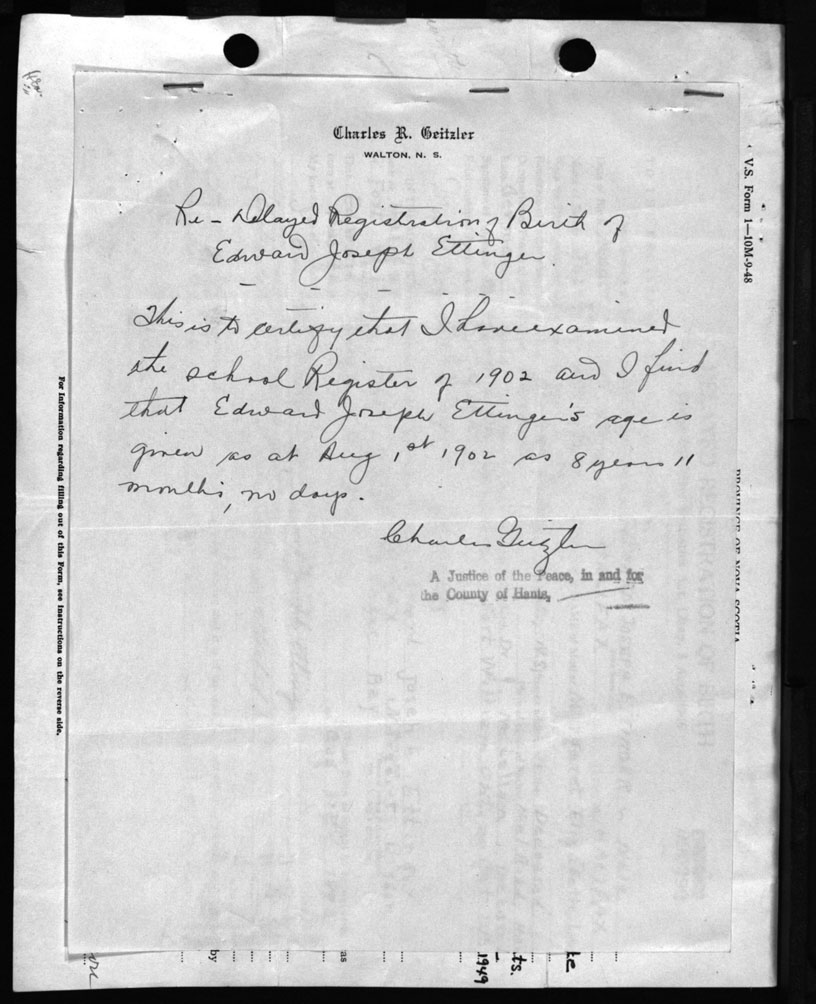 Charles R. Geitzler
WALTON, N. S.
Re - Delayed Registration of Birth of
Edward Joseph Ettinger.
This is to certify that I have examined
the school Register of 1902 and I find
that Edward Joseph Ettinger's age is
given as at Aug 1st 1902 as 8 years 11
months, no days.
Charles Geitzler
A Justice of the Peace, in and for
the County of Hants,
V.S. Form 1—10M-9-48
PROVINCE OF NOVA SCOTIA
For Information regarding filling out of this Form, see Instructions on the reverse side.
by
as
1949
ts.